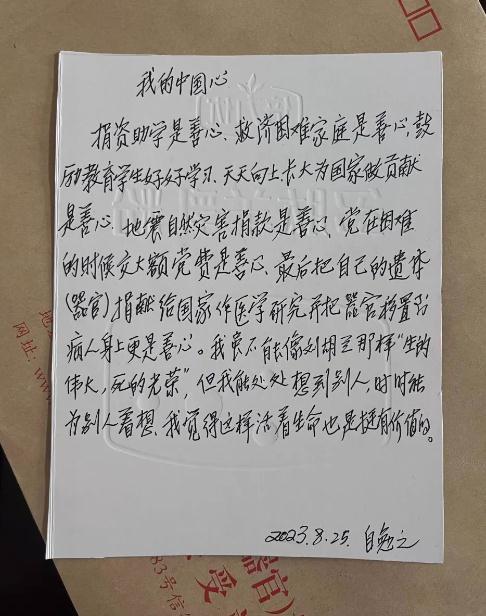 我的中国心
捐资助学是善心、救济困难家庭是善心,鼓
励教育学生好好学习、天天向上长大为国家做贡献
是善心、地震自然灾害捐款是善心、党在困难
的时候交大额党费是善心、最后把自己的遗体
(器官)捐献给国家作医学研究并把器官移置到
病人身上更是善心。我虽不能像刘胡兰那样“生的
伟大,死的光荣”,但我能处处想到别人,时时能
为别人着想、我觉得这样活着生命也是挺有价值的。
2023.8.25. 自勉之
网址:www
器官)
受
83号信